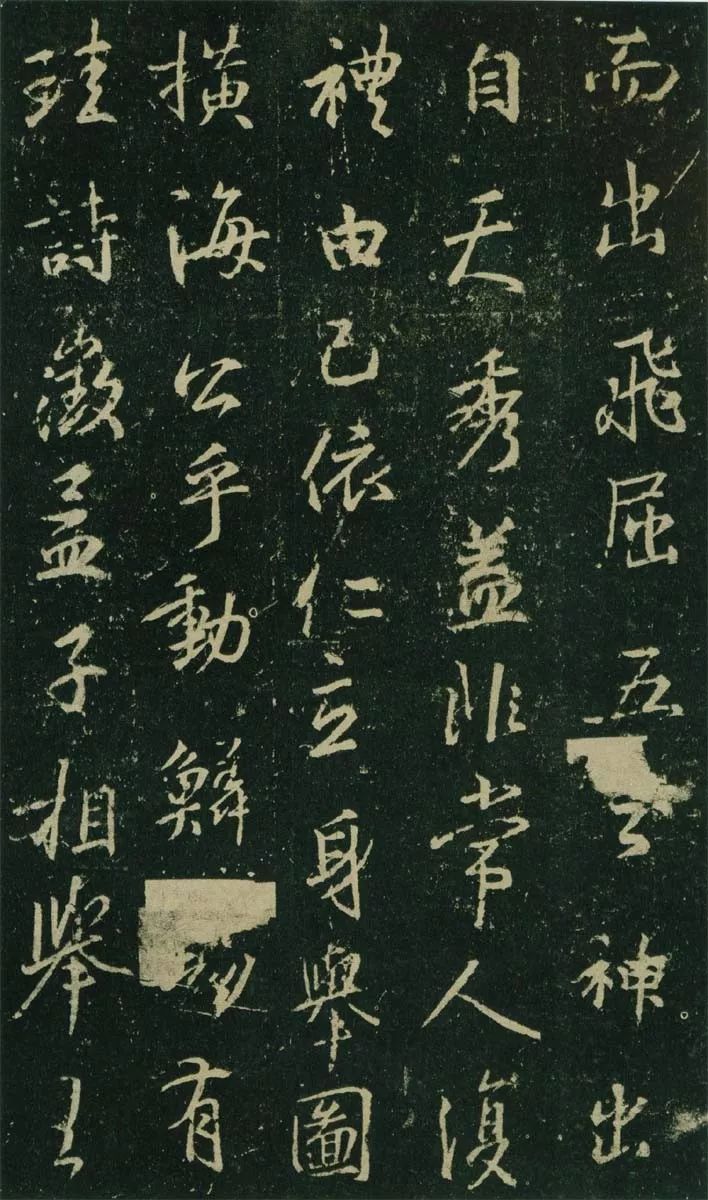 而出飛屈五神出
自天秀蓋非常人復
禮由己依仁立身舉圖
橫海公乎動鱗有
珪詩徵孟子相舉